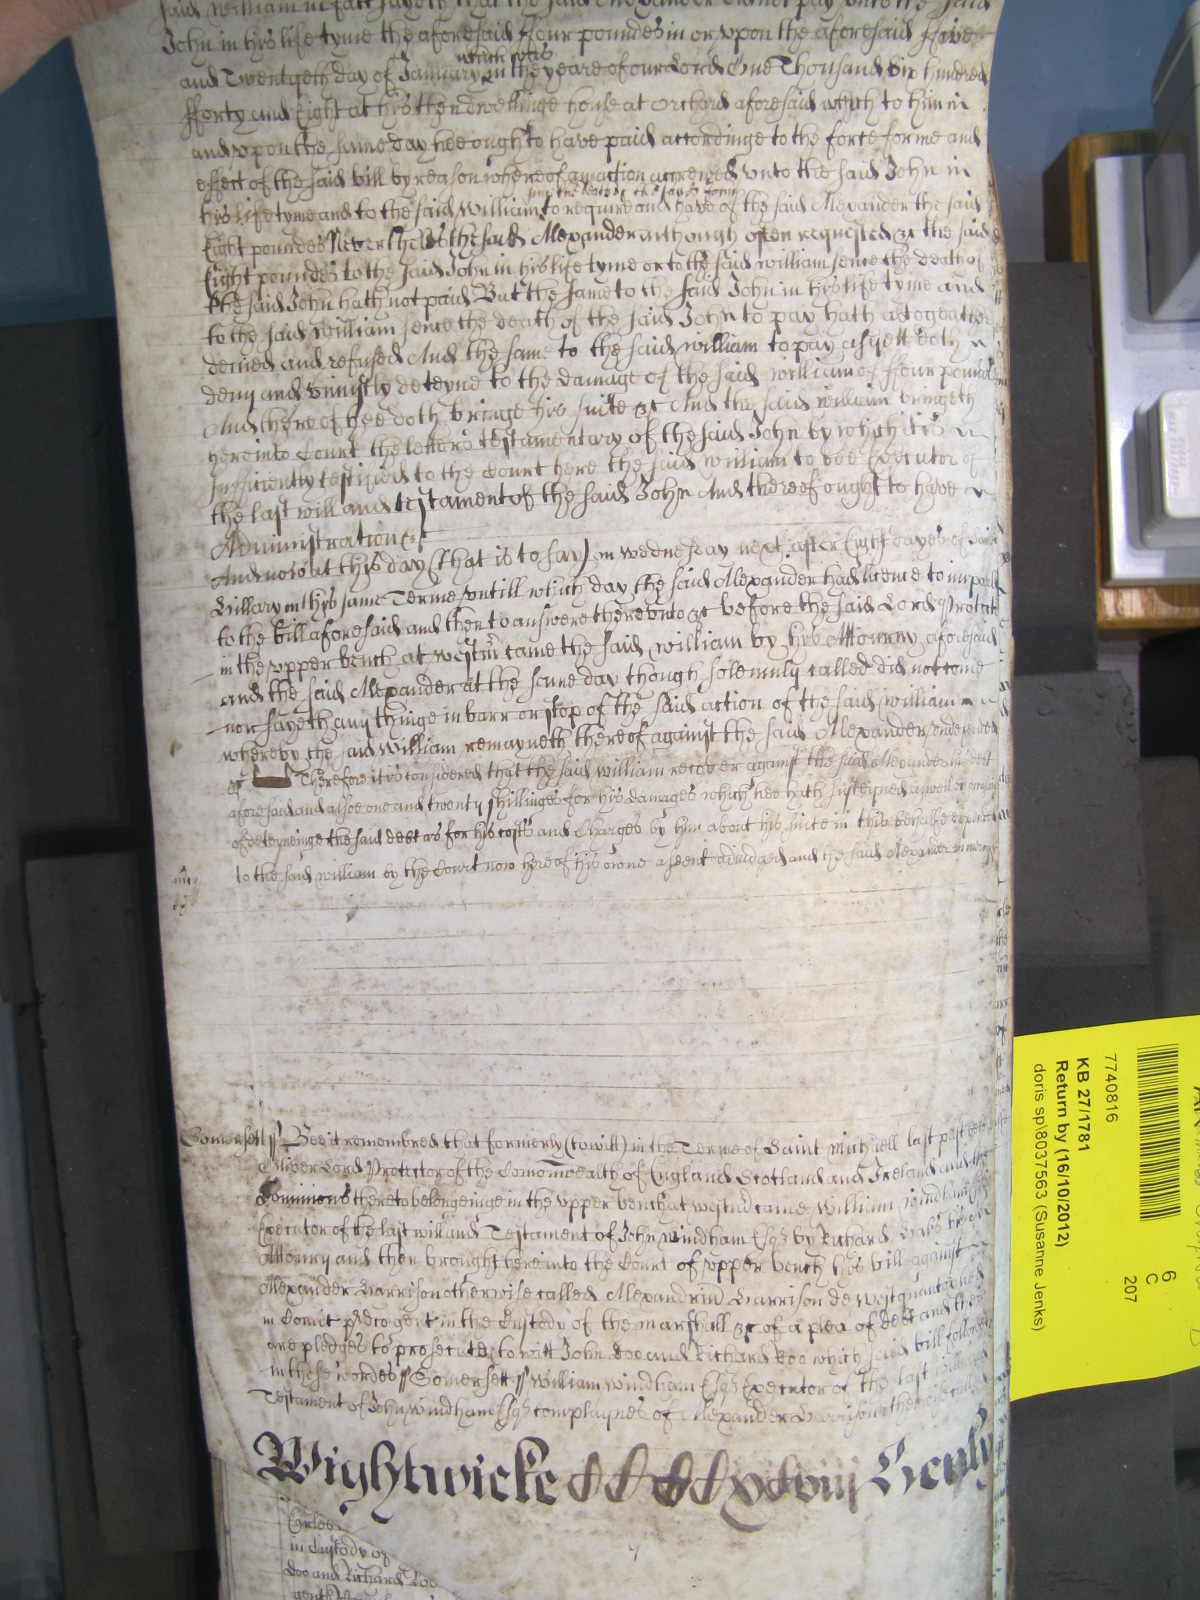 said William in fact sayeth that the said Alexander did not pay unto the said
John in his life tyme the aforesaid ffour poundes in or upon the aforesaid ffive
which was
and Twentyeth day of January in the yeare of our Lord One Thousand Six hundred
fforty and Eight at his then dwellinge house at Orchard aforesaid which to him in
and upon the same day hee ought to have paid accordinge to the force forme and
effect of the said bill by reason whereof an action accrewed unto the said John in
since the death of the said John
his life tyme and to the said William to require and have of the said Alexander the said
Eight poundes Neverthelesse the said Alexander although often requested &c the said
Eight poundes to the said John in his life tyme or to the said William sence the death of
the said John hath not paid But the same to the said John in his life tyme and
to the said William sence the death of the said John to pay hath altogeather
denied and refused And the same to the said William to pay as yett doth
deny and uniustly deteyne to the damage of the said William of ffour poundes
And thereof hee doth bringe his suite &c And the said William bringeth
here into Court the letters testamentary of the said John by which it is
sufficiently testified to the Court here the said William to bee Executor of
the last will and testament of the said John And thereof ought to have
Administration &c
And now at this day (that is to say) on Wednesday next after Eight dayes of Saint
Hillary in this same Terme untill which day the said Alexander had licence to imparle
to the bill aforesaid and then to answere thereunto &c before the said Lord Protector
in the upper bench at Westm came the said William by his Attourny aforesaid
and the said Alexander at the same day though solemnly called did not come
nor sayeth any thinge in barr or stop of the said action of the said William
whereby the said William remayneth thereof against the said Alexander undefended
&c Therefore it is considered that the said William recover against the said Alexander his debt
aforesaid and alsoe one and twenty shillinges for his damages which hee hath susteyned aswell by occasion
of deteyninge the said debt as for his costs and Charges by him about his suite in this behalfe expended
to the said William by the Court now here of his owne assent adiudged and the said Alexander in mercy
Somersett ss Bee it remembred that formerly (to witt) in the Terme of Saint Michaell last past before
Oliver Lord Protector of the Comonwealth of England Scotland and Ireland and the
Dominions thereto belongeinge in the upper bench at Westm came William Windham Esq
Executor of the last will and Testament of John Windham Esq by Richard his
Attourny and then brought here into the Court of upper bench his bill against
Alexander Harrison otherwise called Alexandrin Harrison de West quantoxhed
in Comit pdco gent in the Custody of the marshall &c of a plea of debt and there
are pledges to prosecute to witt John Doo and Richard Roo which said bill followeth
in these wordes ss Somersett ss William Windham Esq Executor of the last will and
Testament of John Windham Esq complaynes of Alexander Harrison otherwise called
Wightwicke Henly
in Custody of
Doo and Richard Roo
7740816
KB 27/1781
Return by (16/10/2012)
doris sp\8037563 (Susanne Jenks)
6
C
207